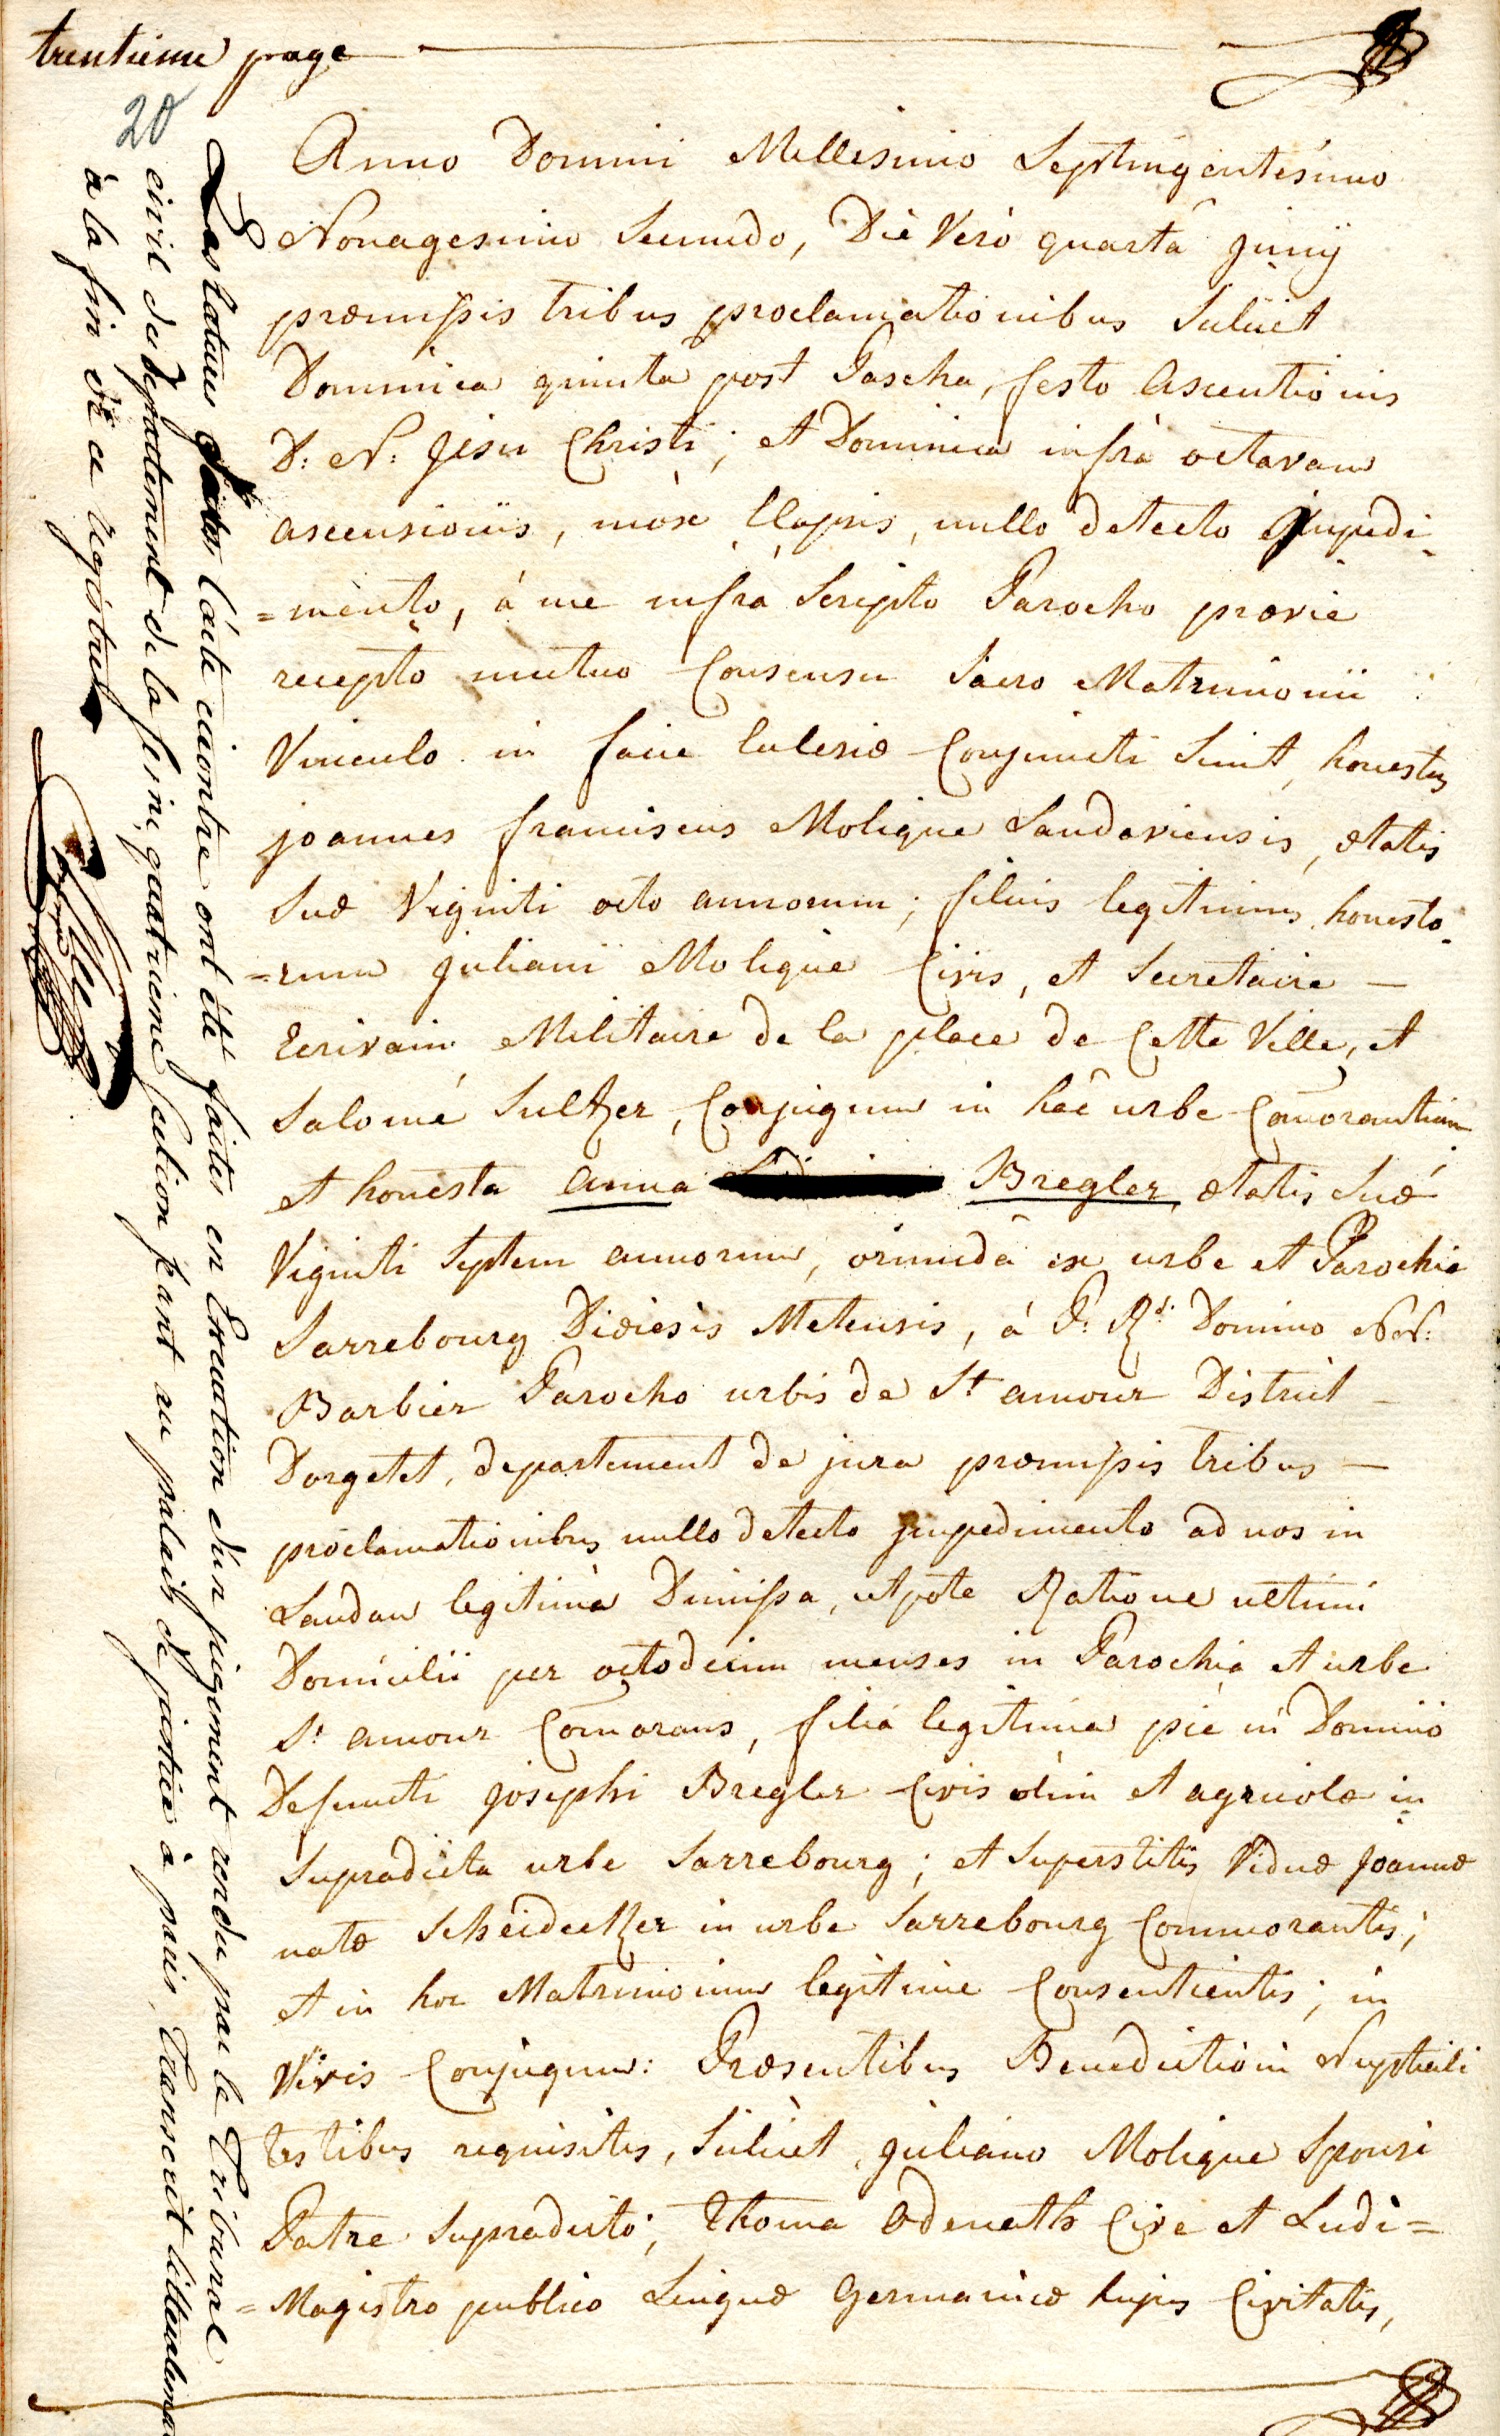 trentieme page
20
Anno Domini Millesimo Septingentesimo
Nonagesimo Secundo, Die Verò quartâ Junij
præmissis tribus proclamationibus Scilicet
Dominica quinta post Pascha, festo Ascentionis
D: N: Jesu Christi; et Dominica infrà octavam
ascensionis, mòx Elapsis, nullo detecto Impedi-
=mento, à me infrà Scripto Parocho prævie
recepto mutuo Consensu Sacro Matrimonii
Vinculo in facie Eclesiæ Conjuncti Sunt, honestus
joannes franciscus Molique Landaviensis, ætatis
Suæ Viginti octo annorum; filius legitimus honesto-
=rum juliani Molique Civis, et Secretaire —
Ecrivain Militaire de la place de Cette Ville, et
Salomé Sultzer, Conjugum in hâc urbe Comorantium
et honesta anna Bregler, ætatis Suæ
Viginti Septem annorum, oriunda ex urbe et Parochia
Sarrebourg Dioiesis Metensis, à P: Rd: Domino NN:
Barbier Parocho urbis de St amour District —
Dorgetet, departement de jura præmissis tribus —
proclamationibus nullo detecto jmpedimento ad nos in
Landau legitimà Dimissa, utpote Ratione ultimi
Domicilii per octodecim menses in Parochia et urbe
St amour Comorans, filia legitima piè in Domino
Defuncti josephi Bregler Civis olim et agricolæ in
Supradicta urbe Sarrebourg; et Superstitis Viduæ Joannæ
natæ Scheidecker in urbe Sarrebourg Commorantis;
et in hoc Matrimonium legitime Consentientis; in
Vivis Conjugum: Præsentibus Benedictioni Nuptiali
testibus requisitis, Scilicet, juliano Molique Sponsi
Patre Supradicto; Thoma Odenath Cive et Ludi=
=Magistro publico Linguæ Germanicæ hujus Civitatis,
Les ratures l'acte cicontre ont été faites en Execution d'un jugement rendu par le Tribunal
civil du departement de la seine, quatrieme Section séant au palais de justice à paris, transcrit litteralement
à la fin de ce registre